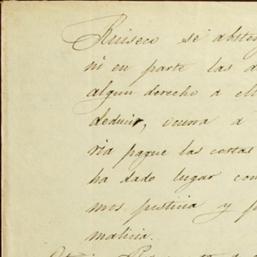 Ruiseco se abste
ni en parte las d
algun derecho a ell
deducir, ocurra a
ria pague las costas
ha dado lugar con
mos justicia y p
malicia.